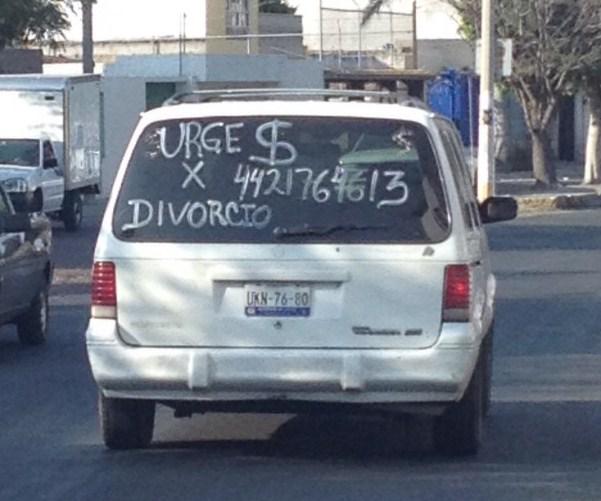 URGE $
X 4421764613
DIVORCIO
UKN-76-80